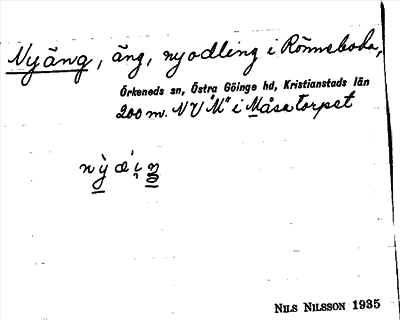 Nyäng, äng, nyodling i Rönneboda,
Örkeneds sn, Östra Göinge hd, Kristianstads län
200 m. NV "M" i Måsatorpet
NILS NILSSON 1935